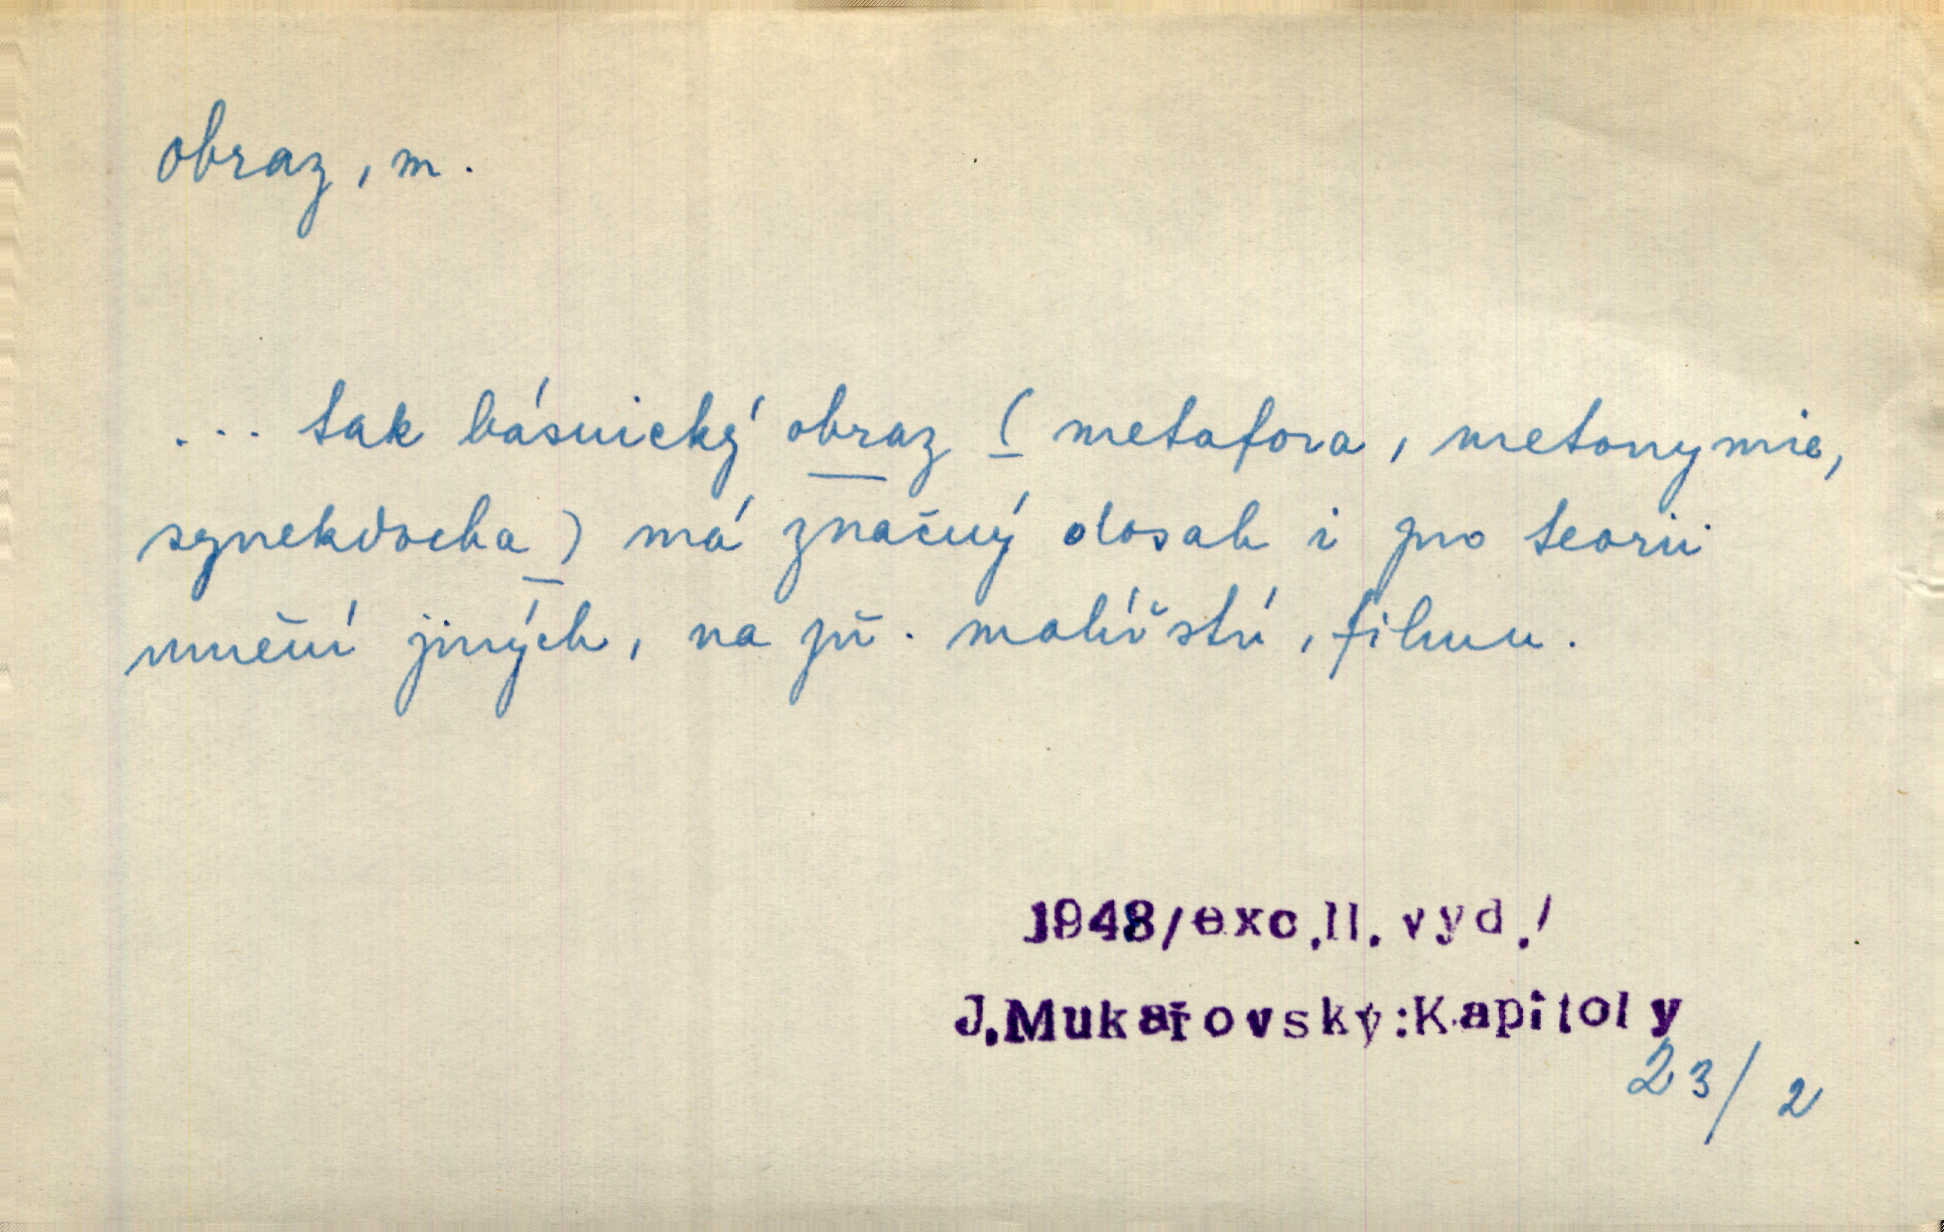 obraz, m.
... tak básnický obraz (metafora, metonymie,
synekdocha) má značný dosah i pro teorii
umění jiných, na př. malířství, filmu.
1948/exc.II.vyd./
J.Mukařovský:Kapitoly
23/2